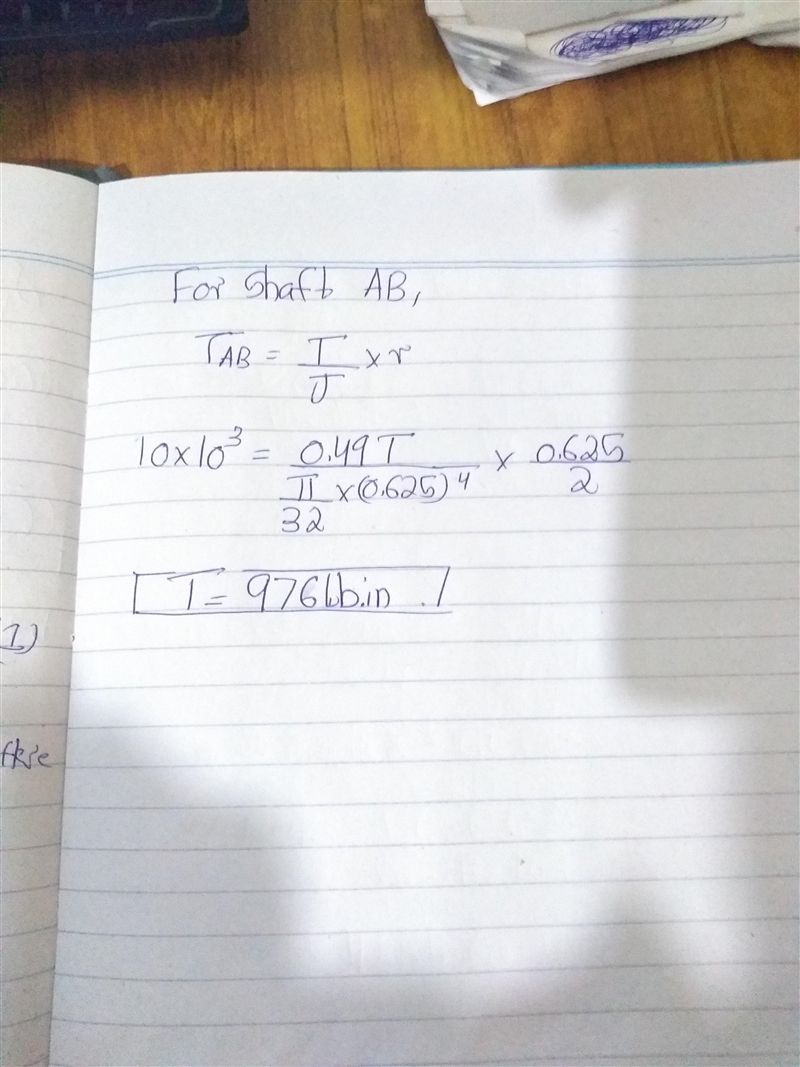 For Shaft AB,
τAB = T/J × r
10×10³ = 0.49T / (π/32 × (0.625)⁴) × 0.625/2
T = 976 lb.in
1)